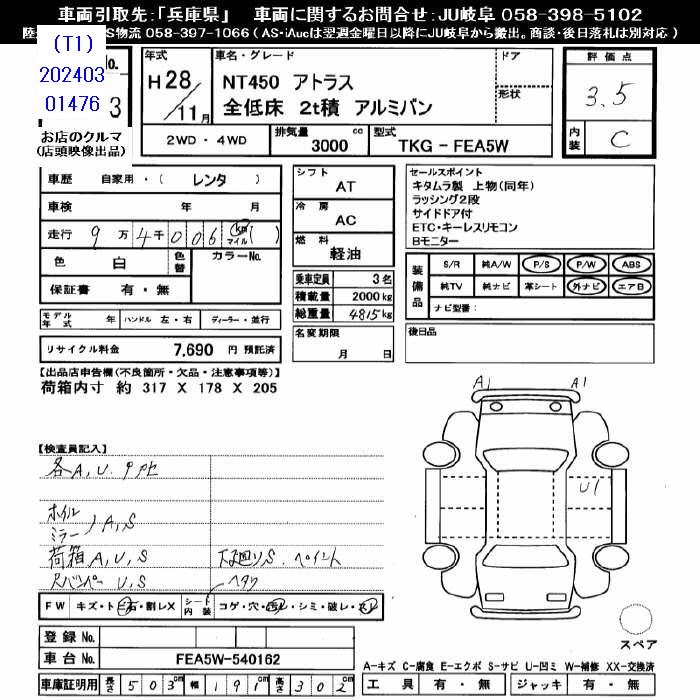 車両引取先:「兵庫県」 車両に関するお問合せ:JU岐阜 058-398-5102
S物流 058-397-1066 (AS・iAucは翌週金曜日以降にJU岐阜から搬出。商談・後日落札は別対応)
(T1)
202403
01476
No.
3
お店のクルマ
(店頭映像出品)
年式
H28/11月
車名・グレード
NT450 アトラス
全低床 2t積 アルミバン
ドア
形状
評価点
3.5
内装
C
2WD・4WD
排気量
3000 cc
型式
TKG-FEA5W
車歴 自家用・( レンタ )
車検 年 月
走行 9万4千006 km マイル ( )
色 白 色替 カラーNo.
保証書 有・無
モデル年式 年 ハンドル 左・右 ディーラー・並行
リサイクル料金 7,690 円 預託済
シフト
AT
冷房
AC
燃料
軽油
乗車定員 3名
積載量 2000kg
総重量 4815kg
名変期限
月 日
セールスポイント
キタムラ製 上物(同年)
ラッシング2段
サイドドア付
ETC・キーレスリモコン
Bモニター
装備品
S/R 純A/W P/S P/W ABS
純TV 純ナビ 革シート 外ナビ エアB
ナビ型番:
後日品
【出品店申告欄(不良箇所・欠品・注意事項等)】
荷箱内寸 約 317 X 178 X 205
【検査員記入】
各A,U
ホイル
ミラー ) A,S
荷箱A,U,S
Rバンパー U,S
下廻りS.ペイント
ヘタク
A1
A1
U1
FW キズ・トビ石・割レX シート内装 コゲ・穴・汚レ・シミ・破レ・スレ
登録No.
車台No. FEA5W-540162
車庫証明用 長さ 503cm 幅 191cm 高さ 302cm
スペア
A-キズ C-腐食 E-エクボ S-サビ U-凹ミ W-補修 XX-交換済
工具 有・無 ジャッキ 有・無